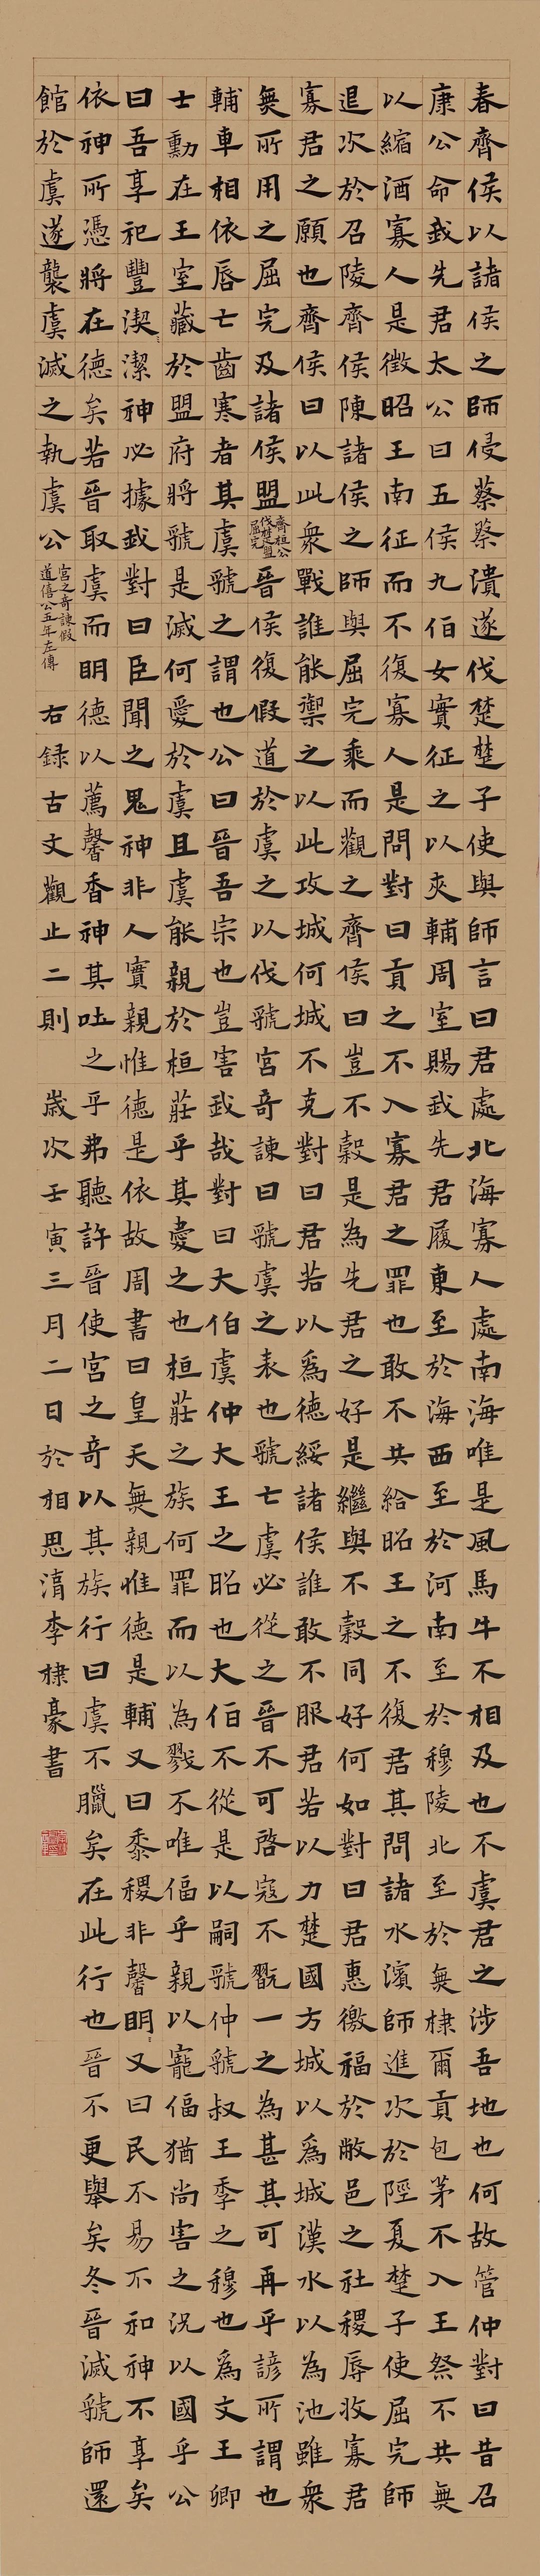 春齊侯以諸侯之師侵蔡蔡潰遂伐楚楚子使與師言曰君處北海寡人處南海唯是風馬牛不相及也不虞君之涉吾地也何故管仲對曰昔召
康公命我先君太公曰五侯九伯女實征之以夾輔周室賜我先君履東至於海西至於河南至於穆陵北至於無棣爾貢包茅不入王祭不共無
以縮酒寡人是徵昭王南征而不復寡人是問對曰貢之不入寡君之罪也敢不共給昭王之不復君其問諸水濱師進次於陘夏楚子使屈完師
退次於召陵齊侯陳諸侯之師與屈完乘而觀之齊侯曰豈不穀是為先君之好是繼與不穀同好何如對曰君惠徼福於敝邑之社稷辱收寡君
寡君之願也齊侯曰以此衆戰誰能禦之以此攻城何城不克對曰君若以爲德綏諸侯誰敢不服君若以力楚國方城以爲城漢水以為池雖衆
無所用之屈完及諸侯盟齊桓公伐楚盟屈完晉侯復假道於虞之以伐虢宮奇諫曰虢虞之表也虢亡虞必從之晉不可啓寇不翫一之為甚其可再乎諺所謂也
輔車相依唇亡齒寒者其虞虢之謂也公曰晉吾宗也豈害我哉對曰大伯虞仲大王之昭也大伯不從是以嗣虢仲虢叔王季之穆也爲文王卿
士勳在王室藏於盟府將虢是滅何愛於虞且虞能親於桓莊乎其愛之也桓莊之族何罪而以為戮不唯偪乎親以寵偪猶尚害之況以國乎公
曰吾享祀豐潔神必據我對曰臣聞之鬼神非人實親惟德是依故周書曰皇天無親惟德是輔又曰黍稷非馨明又曰民不易不和神不享矣
依神所憑將在德矣若晉取虞而明德以薦馨香神其吐之乎弗聽許晉使宮之奇以其族行曰虞不臘矣在此行也晉不更舉矣冬晉滅虢師還
館於虞遂襲虞滅之執虞公宮之奇諫假道僖公五年左傳 右錄古文觀止二則 歲次壬寅三月二日於相思李棣豪書